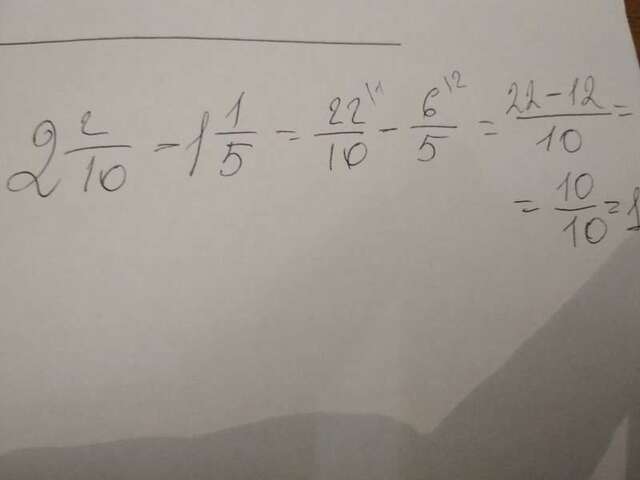 2 2/10 - 1 1/5 = 22\1/10 - 6\2/5 = 22-12/10 =
= 10/10 = 1